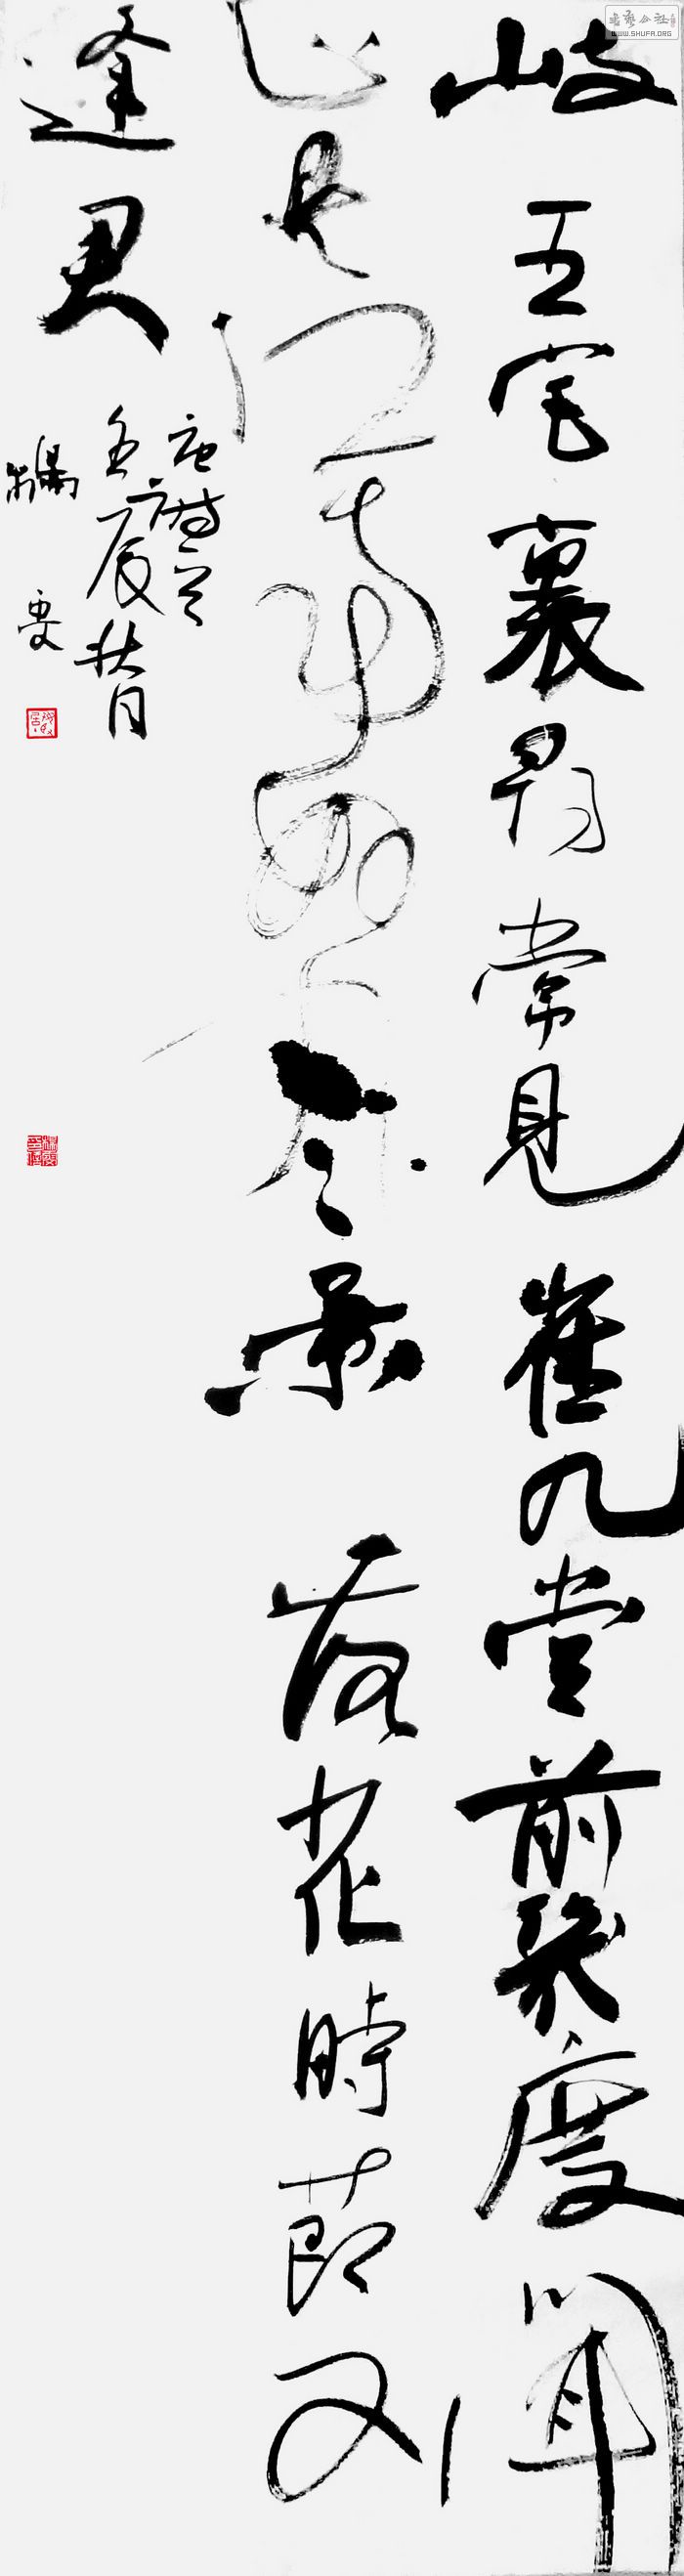 岐王宅裏尋常見崔九堂前幾度聞
正是江南好風景落花時節又
逢君
壬辰秋月
书艺公社
WWW.SHUFA.ORG